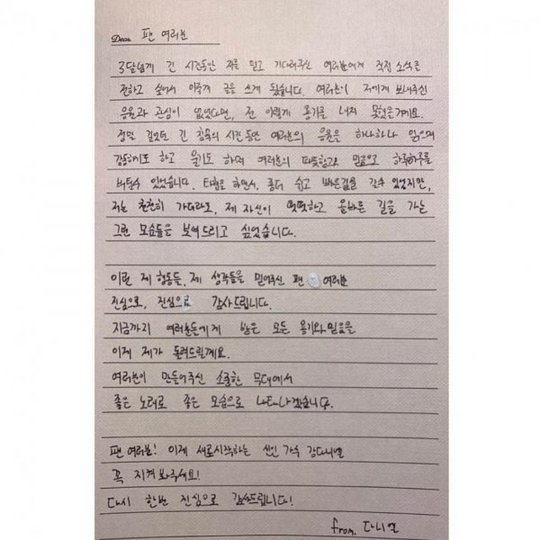 Dear. 팬 여러분
3달넘게 긴 시간동안 저를 믿고 기다려주신 여러분에게 직접 소식을
전하고 싶어서 이렇게 글을 쓰게 됐습니다. 여러분이 저에게 보내주신
응원과 관심이 없었다면, 전 이렇게 용기를 내지 못했을거에요.
정말 길었던 긴 침묵의 시간 동안 여러분의 응원을 하나하나 읽으며
감동하기도 하고 울기도 하며 여러분의 따뜻함과 믿음으로 하루하루를
버틸수 있었습니다. 타협을 하면서, 좀더 쉽고 빠른길을 갈수 있었지만,
저는 천천히 가더라도, 제 자신이 떳떳하고 올바른 길을 가는
그런 모습들을 보여드리고 싶었습니다.
이런 제 행동들, 제 생각들을 믿어주신 팬 여러분
진심으로, 진심으로 감사드립니다.
지금까지 여러분들에게 받은 모든 용기와 믿음을
이제 제가 돌려드릴게요.
여러분이 만들어주신 소중한 무대에서
좋은 노래로 좋은 모습으로 나타나겠습니다.
팬 여러분! 이제 새로시작하는 신인 가수 강다니엘
꼭 지켜봐주세요!
다시 한번 진심으로 감사드립니다!
from. 다니엘